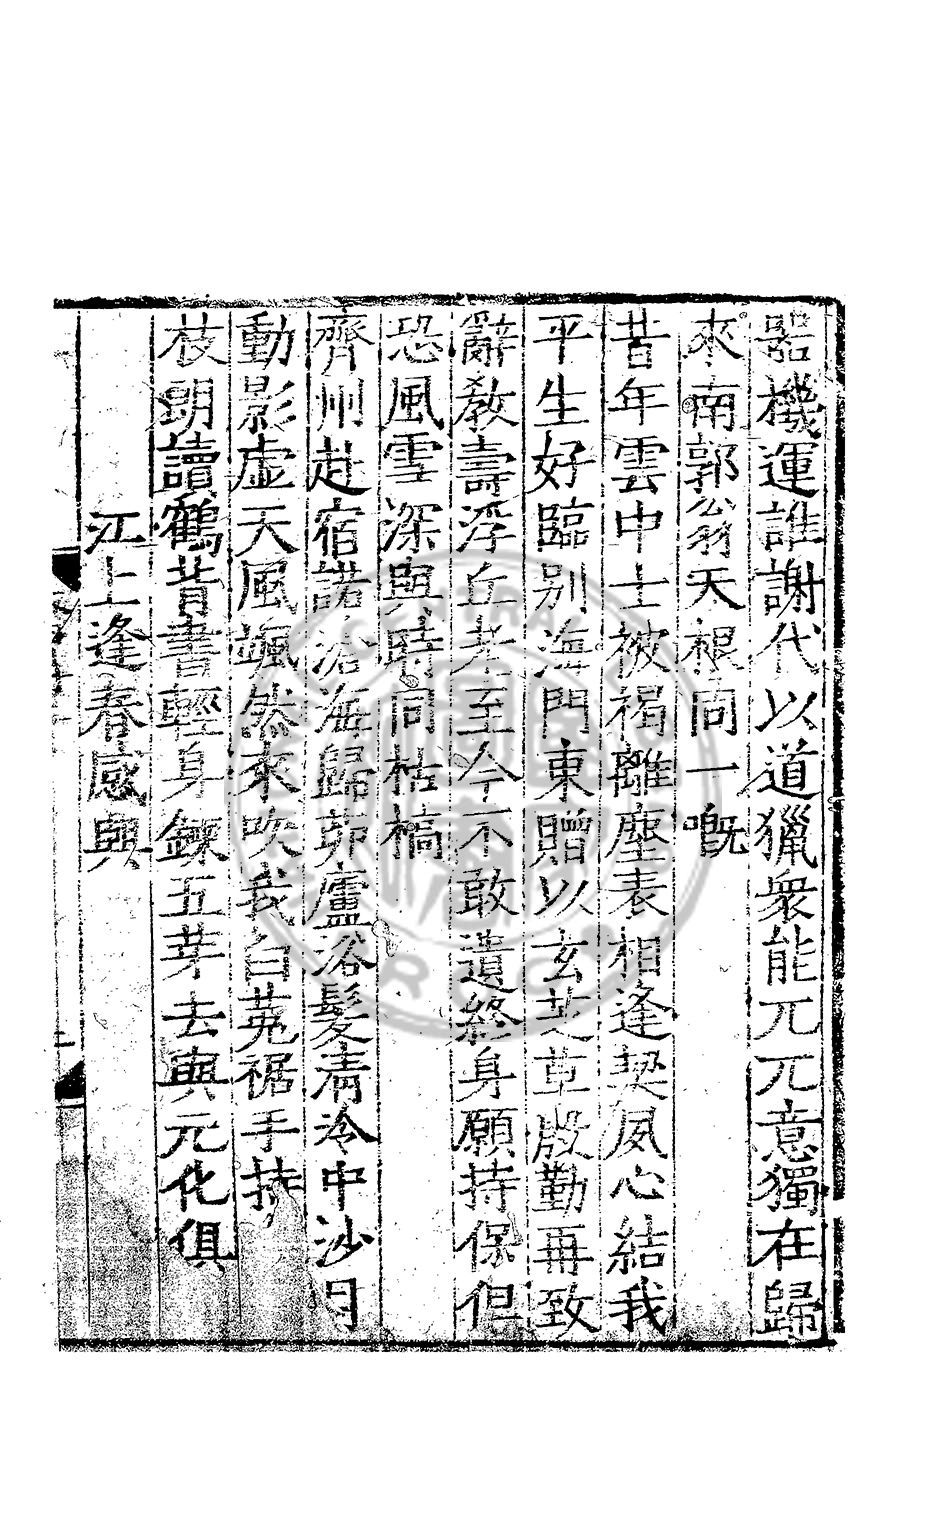 器機運誰謝代以道獵衆能元元意獨在歸
來南郭翁天根同一嘅
昔年雲中士被褐離塵表相逢契夙心結我
平生好臨别海門東贈以玄芝草殷勤再致
辭教壽浮丘老至今不敢遺終身願持保但
恐風雪深與時同枯槁
齊州赴宿諾滄海歸茆廬浴髮清冷中沙月
動影虚天風颯然來吹我白苑裾手持
枝朗讀鶴背書輕身鍊五芽去與元化俱
江上逢春感興